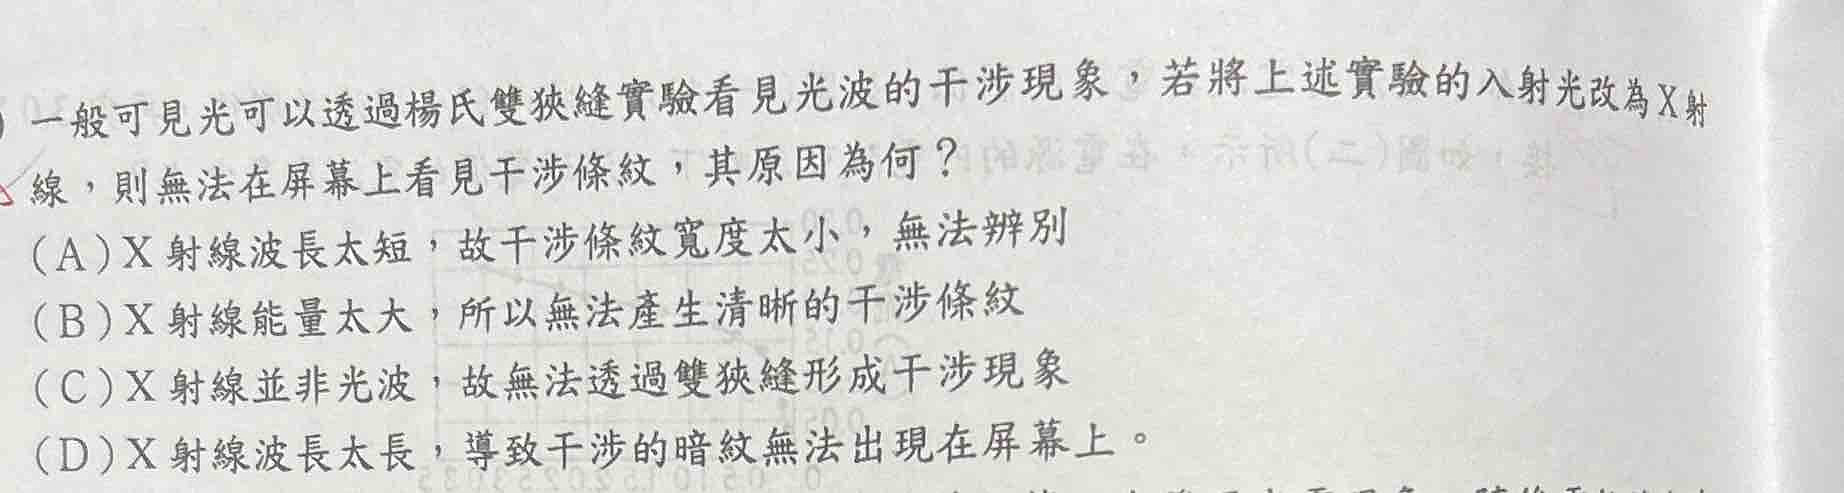 )一般可見光可以透過楊氏雙狹縫實驗看見光波的干涉現象，若將上述實驗的入射光改為X射
線，則無法在屏幕上看見干涉條紋，其原因為何？
(A)X射線波長太短，故干涉條紋寬度太小，無法辨別
(B)X射線能量太大，所以無法產生清晰的干涉條紋
(C)X射線並非光波，故無法透過雙狹縫形成干涉現象
(D)X射線波長太長，導致干涉的暗紋無法出現在屏幕上。